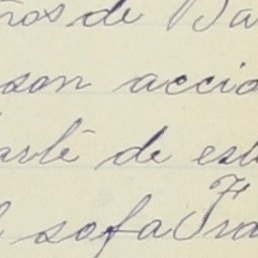 ños de Ba
son accid
arlé de est
l sofa Fra